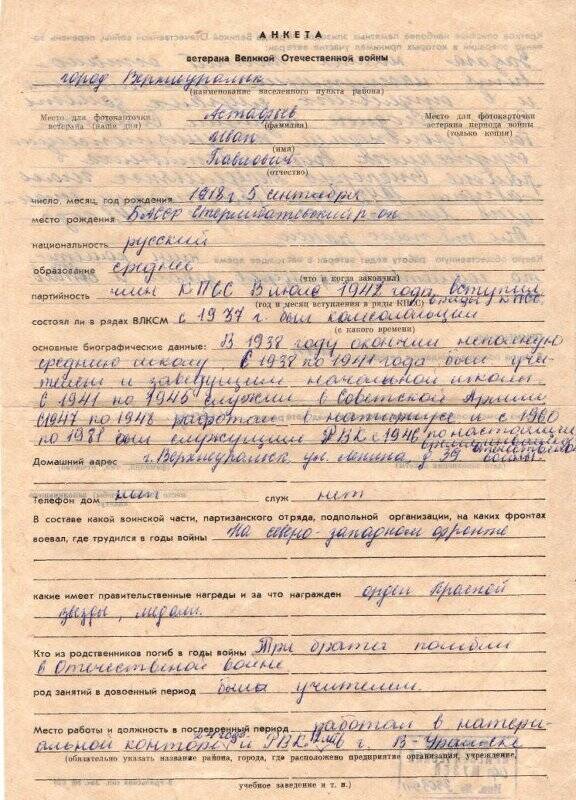 АНКЕТА
ветерана Великой Отечественной войны
город Верхнеуральск
(наименование населенного пункта района)
Астафьев
Место для фотокарточки ветерана (наши дни)
(фамилия)
Место для фотокарточки ветерана периода войны (только копия)
Иван
(имя)
Павлович
(отчество)
число, месяц, год рождения 1918 г 5 сентября
место рождения БАССР Стерлибашевский р-он
национальность русский
образование среднее
(что и когда закончил)
партийность член КПСС В июле 1942 года вступил в ряды КПСС
(год и месяц вступления в ряды КПСС)
состоял ли в рядах ВЛКСМ с 1937 г. был комсомольцем
(с какого времени)
основные биографические данные: В 1938 году окончил неполную
среднюю школу С 1938 по 1941 года был учи-
телем и заведущим начальной школы
С 1941 по 1946 служил в Советской Армии
С 1947 по 1948 работал в и с 1960
по 1981 был служущим РВК с 1946 по настоящий
Домашний адрес г. Верхнеуральск ул. Ленина, д 39
Телефон дом нет служ нет
В составе какой воинской части, партизанского отряда, подпольной организации, на каких фронтах
воевал, где трудился в годы войны На северо-западном фронте
какие имеет правительственные награды и за что награжден орден Красной
звезды, медали.
Кто из родственников погиб в годы войны Три брата погибли
в Отечественой войне
род занятий в довоенный период был учителем.
Место работы и должность в послевоенный период работал в натери-
альной конторе и РВК в г. В-Уральске
(обязательно указать название района, города, где расположено предприятие организация, учреждение,
учебное заведение и т. п.)